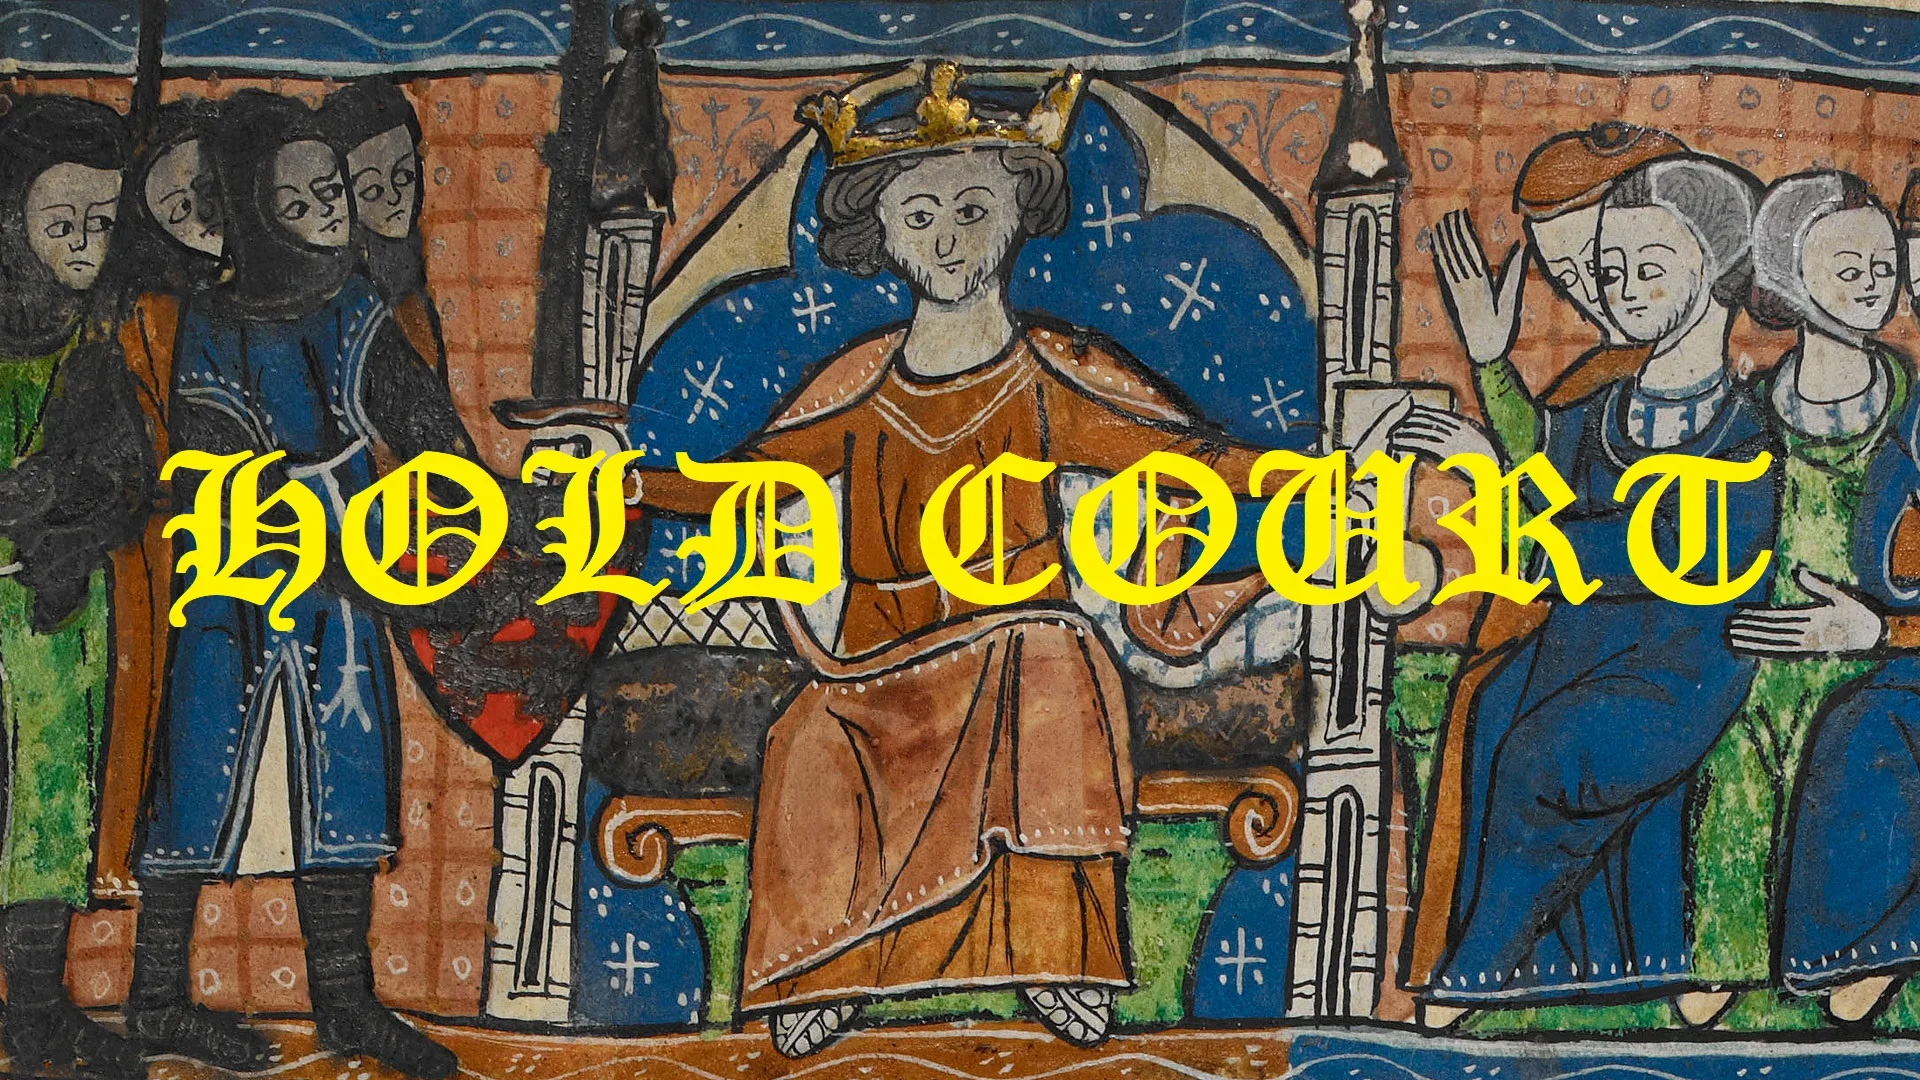 HOLD COURT